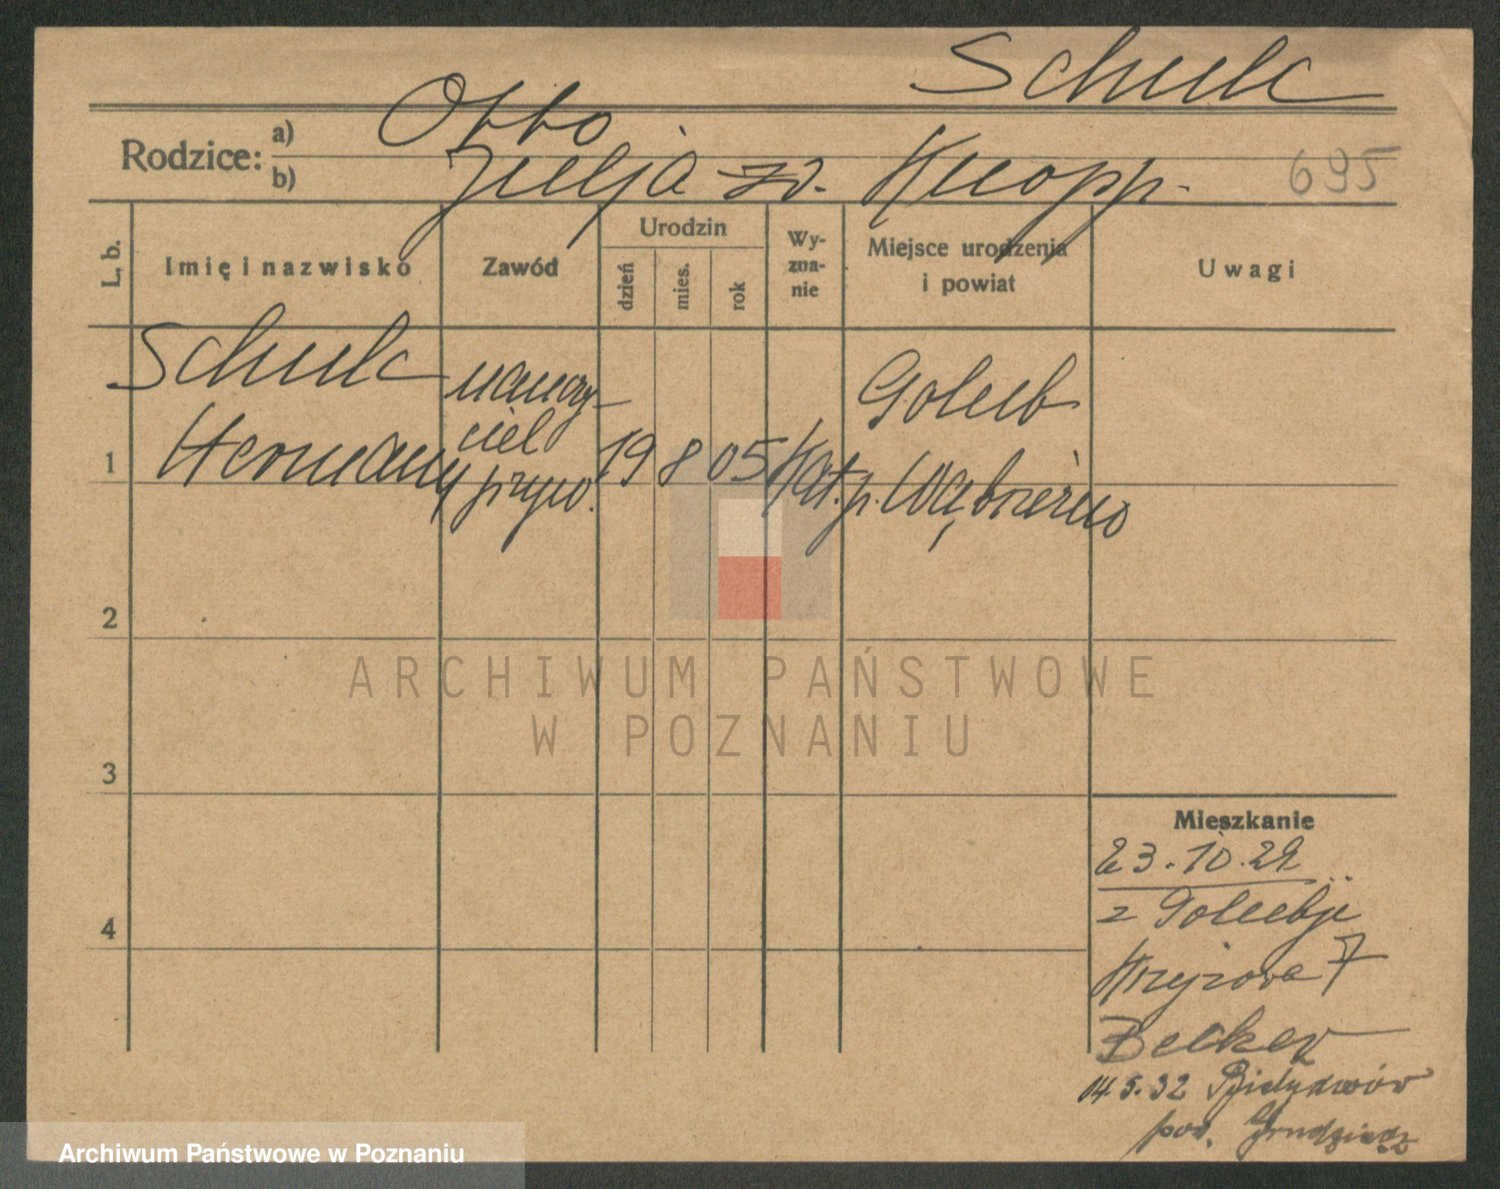 Schulc
Rodzice: a) Otto
b) Julja zd. Knopp.
695
L. b.
Imię i nazwisko
Zawód
Urodzin
dzień
mies.
rok
Wy-
zna-
nie
Miejsce urodzenia
i powiat
Uwagi
Schulc
Hermann
nauczy-
ciel
pryw.
19 8 05 Kat.
Golub
p. Wąbrzeźno
1
2
3
4
Mieszkanie
23.10.29
z Golubja
Krzyżowa 7
Becker
14.5.32 Białydwór
pow. Grudziądz
ARCHIWUM PAŃSTWOWE
W POZNANIU
Archiwum Państwowe w Poznaniu